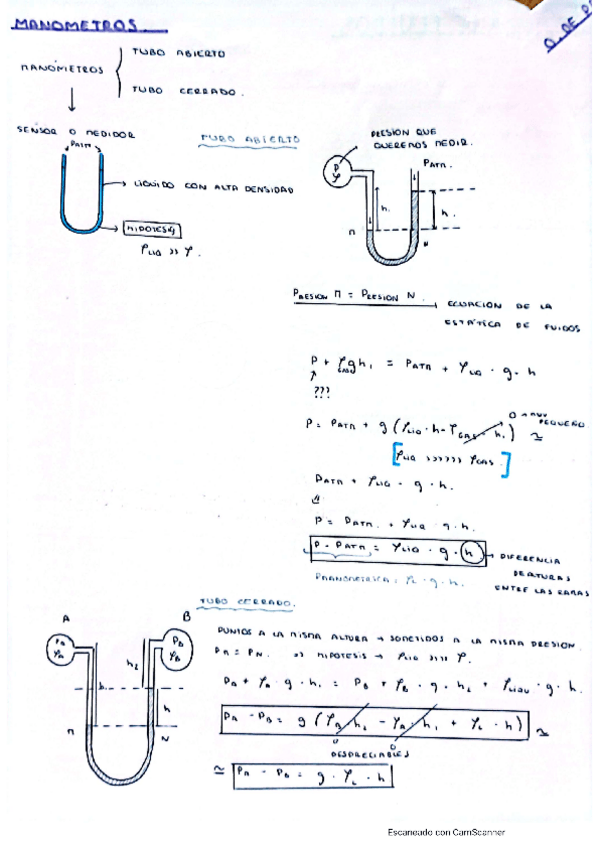 MANOMETROS
O. DE P
MANÓMETROS
TUBO ABIERTO
TUBO CERRADO.
SENSOR O MEDIDOR
PATM
LÍQUIDO CON ALTA DENSIDAD
HIPOTESIS
ρLIQ >> ρ.
TUBO ABIERTO
PRESION QUE
QUEREMOS MEDIR.
P
ρ
PATM.
h,
h.
M
N
PRESION M = PRESION N.
ECUACION DE LA
ESTÁTICA DE FUIDOS
P + ρGAS g h1 = PATM + ρLIQ · g · h
???
P = PATM + g (ρLIQ · h - ρGAS · h1) ≃
0 → MUY
PEQUEÑO
[ρLIQ >>>>>> ρGAS.]
PATM + ρLIQ · g · h.
P = PATM. + ρLIQ · g · h.
P - PATM = ρLIQ · g · h
DIFERENCIA
DE ALTURAS
ENTRE LAS RAMAS
PMANOMETRICA = ρL · g · h.
TUBO CERRADO.
A
B
PA
ρA
PB
ρB
h2
h
M
N
PUNTOS A LA MISMA ALTURA → SOMETIDOS A LA MISMA PRESION.
PM = PN. => HIPOTESIS → ρLIQ >>>> ρ.
PA + ρA · g · h1 = PB + ρB · g · h2 + ρLIQU · g · h.
PA - PB = g (ρB h2 - ρA · h1 + ρL · h) ≃
0
0
DESPRECIABLES
≃ PA - PB = g · ρL · h
Escaneado con CamScanner